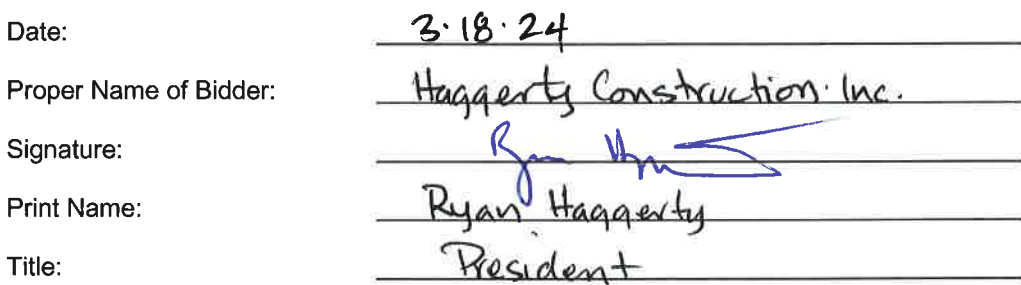 Date: 3·18·24
Proper Name of Bidder: Haggerty Construction Inc.
Signature: Ryan
Print Name: Ryan Haggerty
Title: President